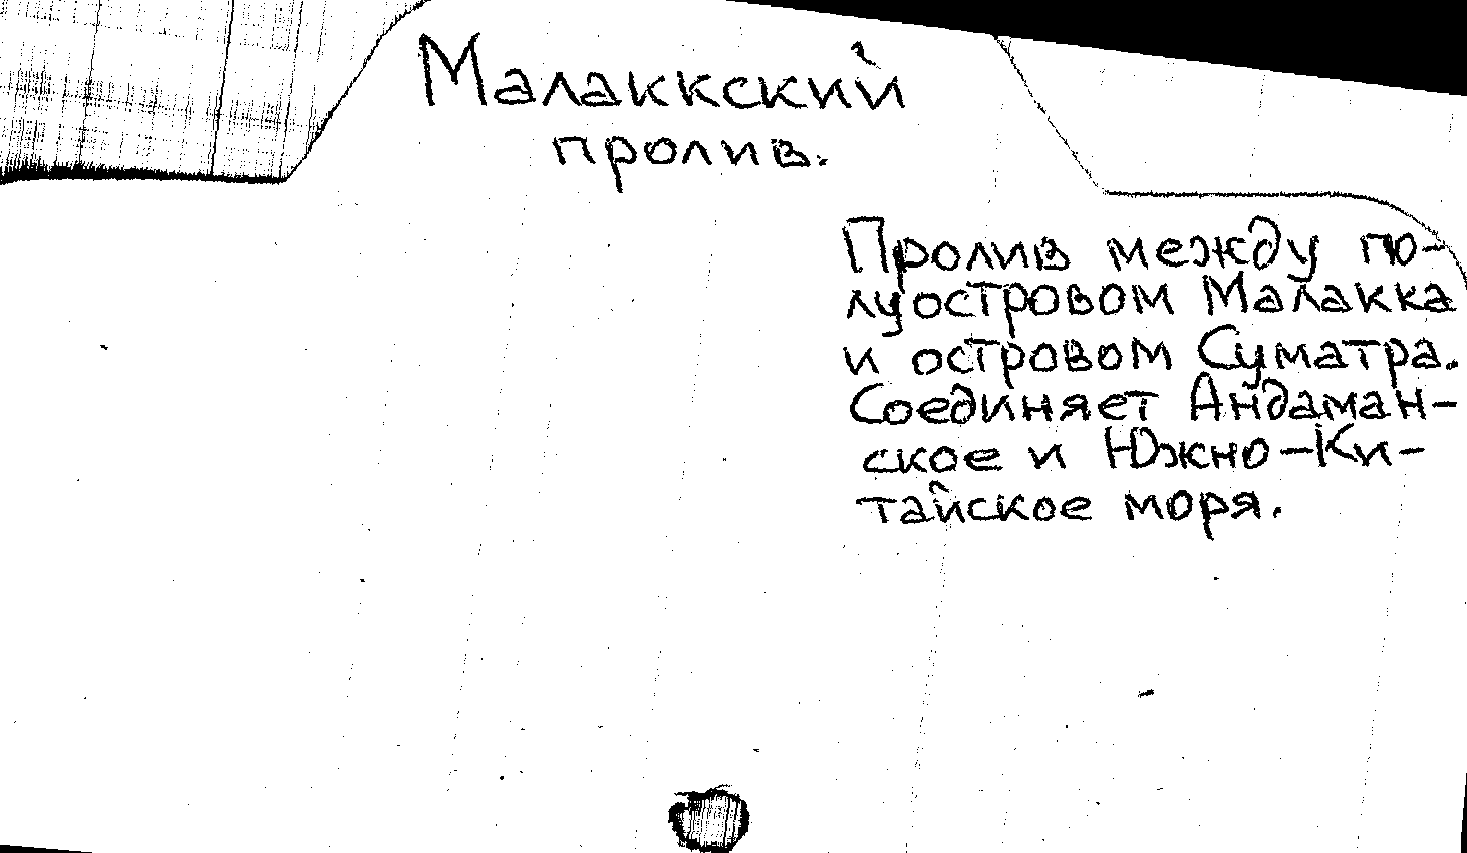 Малаккский
пролив.
Пролив между по-
луостровом Малакка
и островом Суматра.
Соединяет Андаман-
ское и Южно-Ки-
тайское моря.